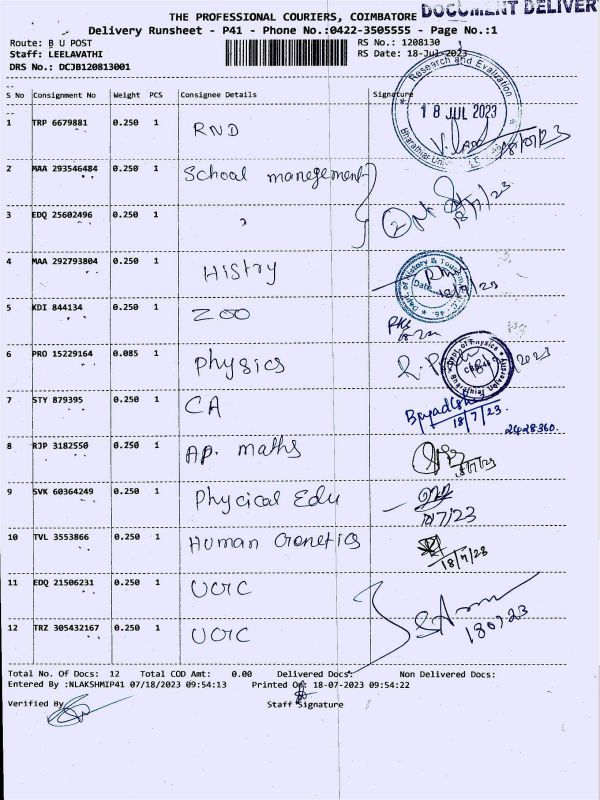 DOCUMENT DELIVERY
THE PROFESSIONAL COURIERS, COIMBATORE
Delivery Runsheet - P41 - Phone No.:0422-3505555 - Page No.:1
Route: B U POST RS No.: 1208130
Staff: LEELAVATHI RS Date: 18-Jul-2023
DRS No.: DCJB120813001
S No Consignment No Weight PCS Consignee Details Signature
Research and Evaluation
18 JUL 2023
1 TRP 6679881 0.250 1 RND
18/07/23
2 MAA 293546484 0.250 1 School manegement
3 EDQ 25602496 0.250 1 "
18/7/23
4 MAA 292793804 0.250 1 Histry
Dept. of History & Tourism
Date
5 KDI 844134 0.250 1 ZOO
6 PRO 15229164 0.085 1 Physics
Dept of Physics
Bharathiar University
7 STY 879395 0.250 1 CA
18/7/23.
2428360.
8 RJP 3182550 0.250 1 AP. maths
9 SVK 60364249 0.250 1 Phycical Edu
10 TVL 3553866 0.250 1 Human Genetics
18/7/23
11 EDQ 21506231 0.250 1 UGC
12 TRZ 305432167 0.250 1 UGC
Total No. Of Docs: 12 Total COD Amt: 0.00 Delivered Docs: Non Delivered Docs:
Entered By :NLAKSHMIP41 07/18/2023 09:54:13 Printed On: 18-07-2023 09:54:22
Verified By Staff Signature